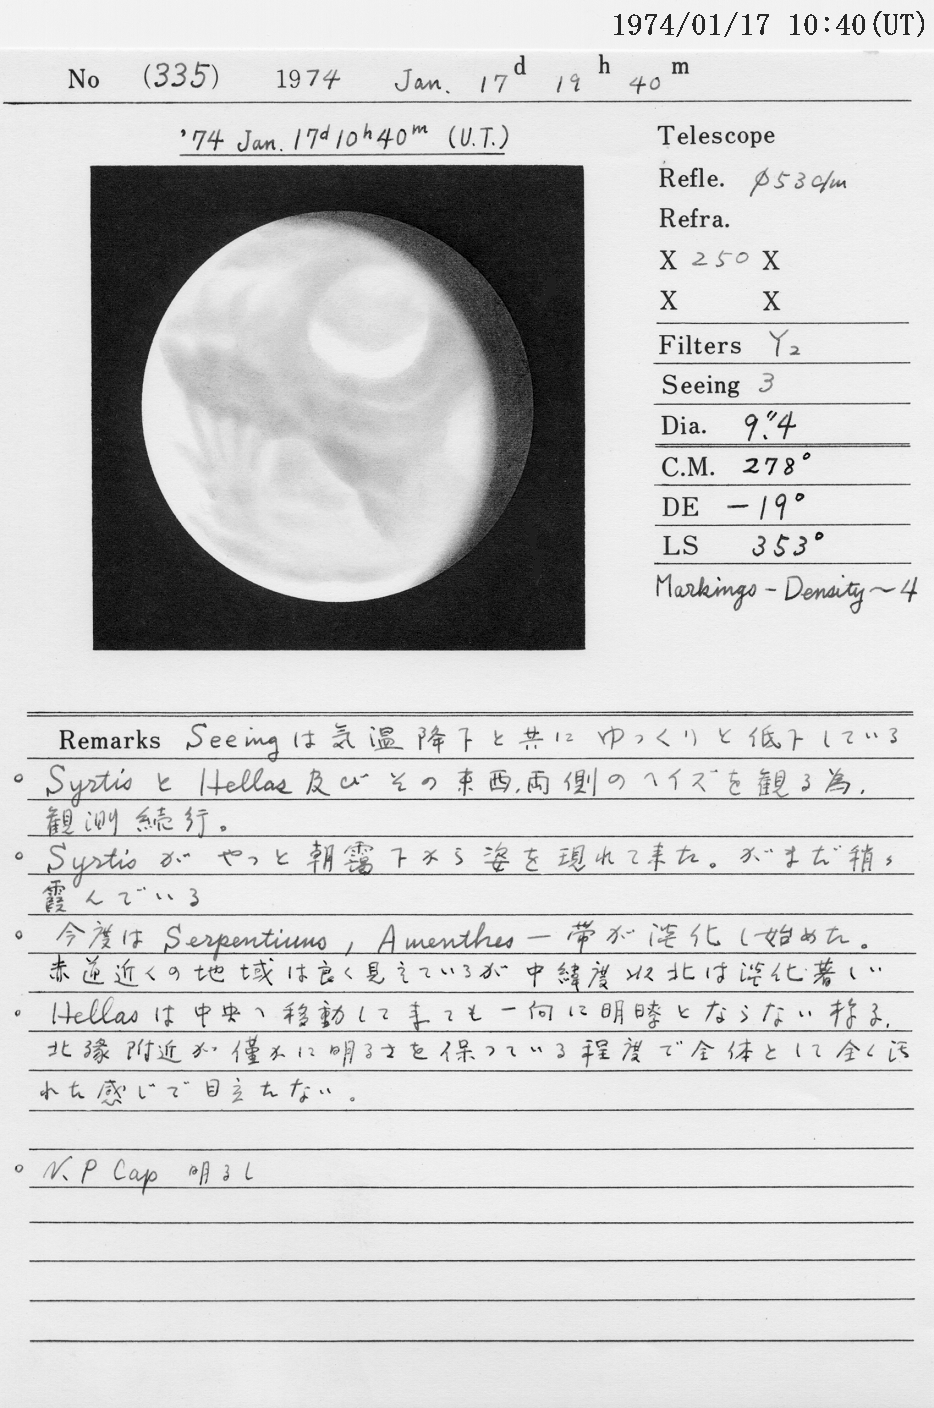 1974/01/17 10:40(UT)
No (335) 1974 Jan. 17d 19h 40m
'74 Jan. 17d10h40m (U.T.)
Telescope
Refle. φ53c/m
Refra.
X 250 X
X X
Filters Y2
Seeing 3
Dia. 9."4
C.M. 278°
DE -19°
LS 353°
Markings - Density ~ 4
Remarks Seeingは気温降下と共にゆっくりと低下している
○ Syrtis と Hellas 及びその東西,両側のヘイズを観る為,
観測続行。
○ Syrtis が やっと朝靄下から姿を現れて来た。がまだ稍々
霞んでいる
○ 今度は Serpentinus, Amenthes 一帯が淡化し始めた。
赤道近くの地域は良く見えているが中緯度以北は淡化著しい
○ Hellas は中央へ移動して来ても一向に明瞭とならない
北縁附近が僅かに明るさを保っている程度で全体として全く汚
れた感じで目立たない。
○ N.P Cap 明るし